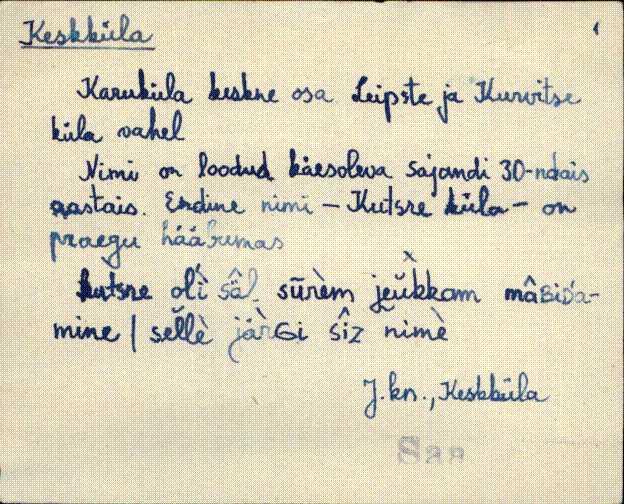 Keskküla
Karuküla keskne osa Leipste ja Kurvitse
küla vahel
Nimi on loodud käesoleva sajandi 30-ndais
aastais. Endine nimi – Kutsre küla – on
praegu hääbumas
kùtsre olʹì säl sūrèm jeŭkkam mâʙiᴅa-
mine / sĕllè järɢi sîz nimè
J. kn., Keskküla
Saa